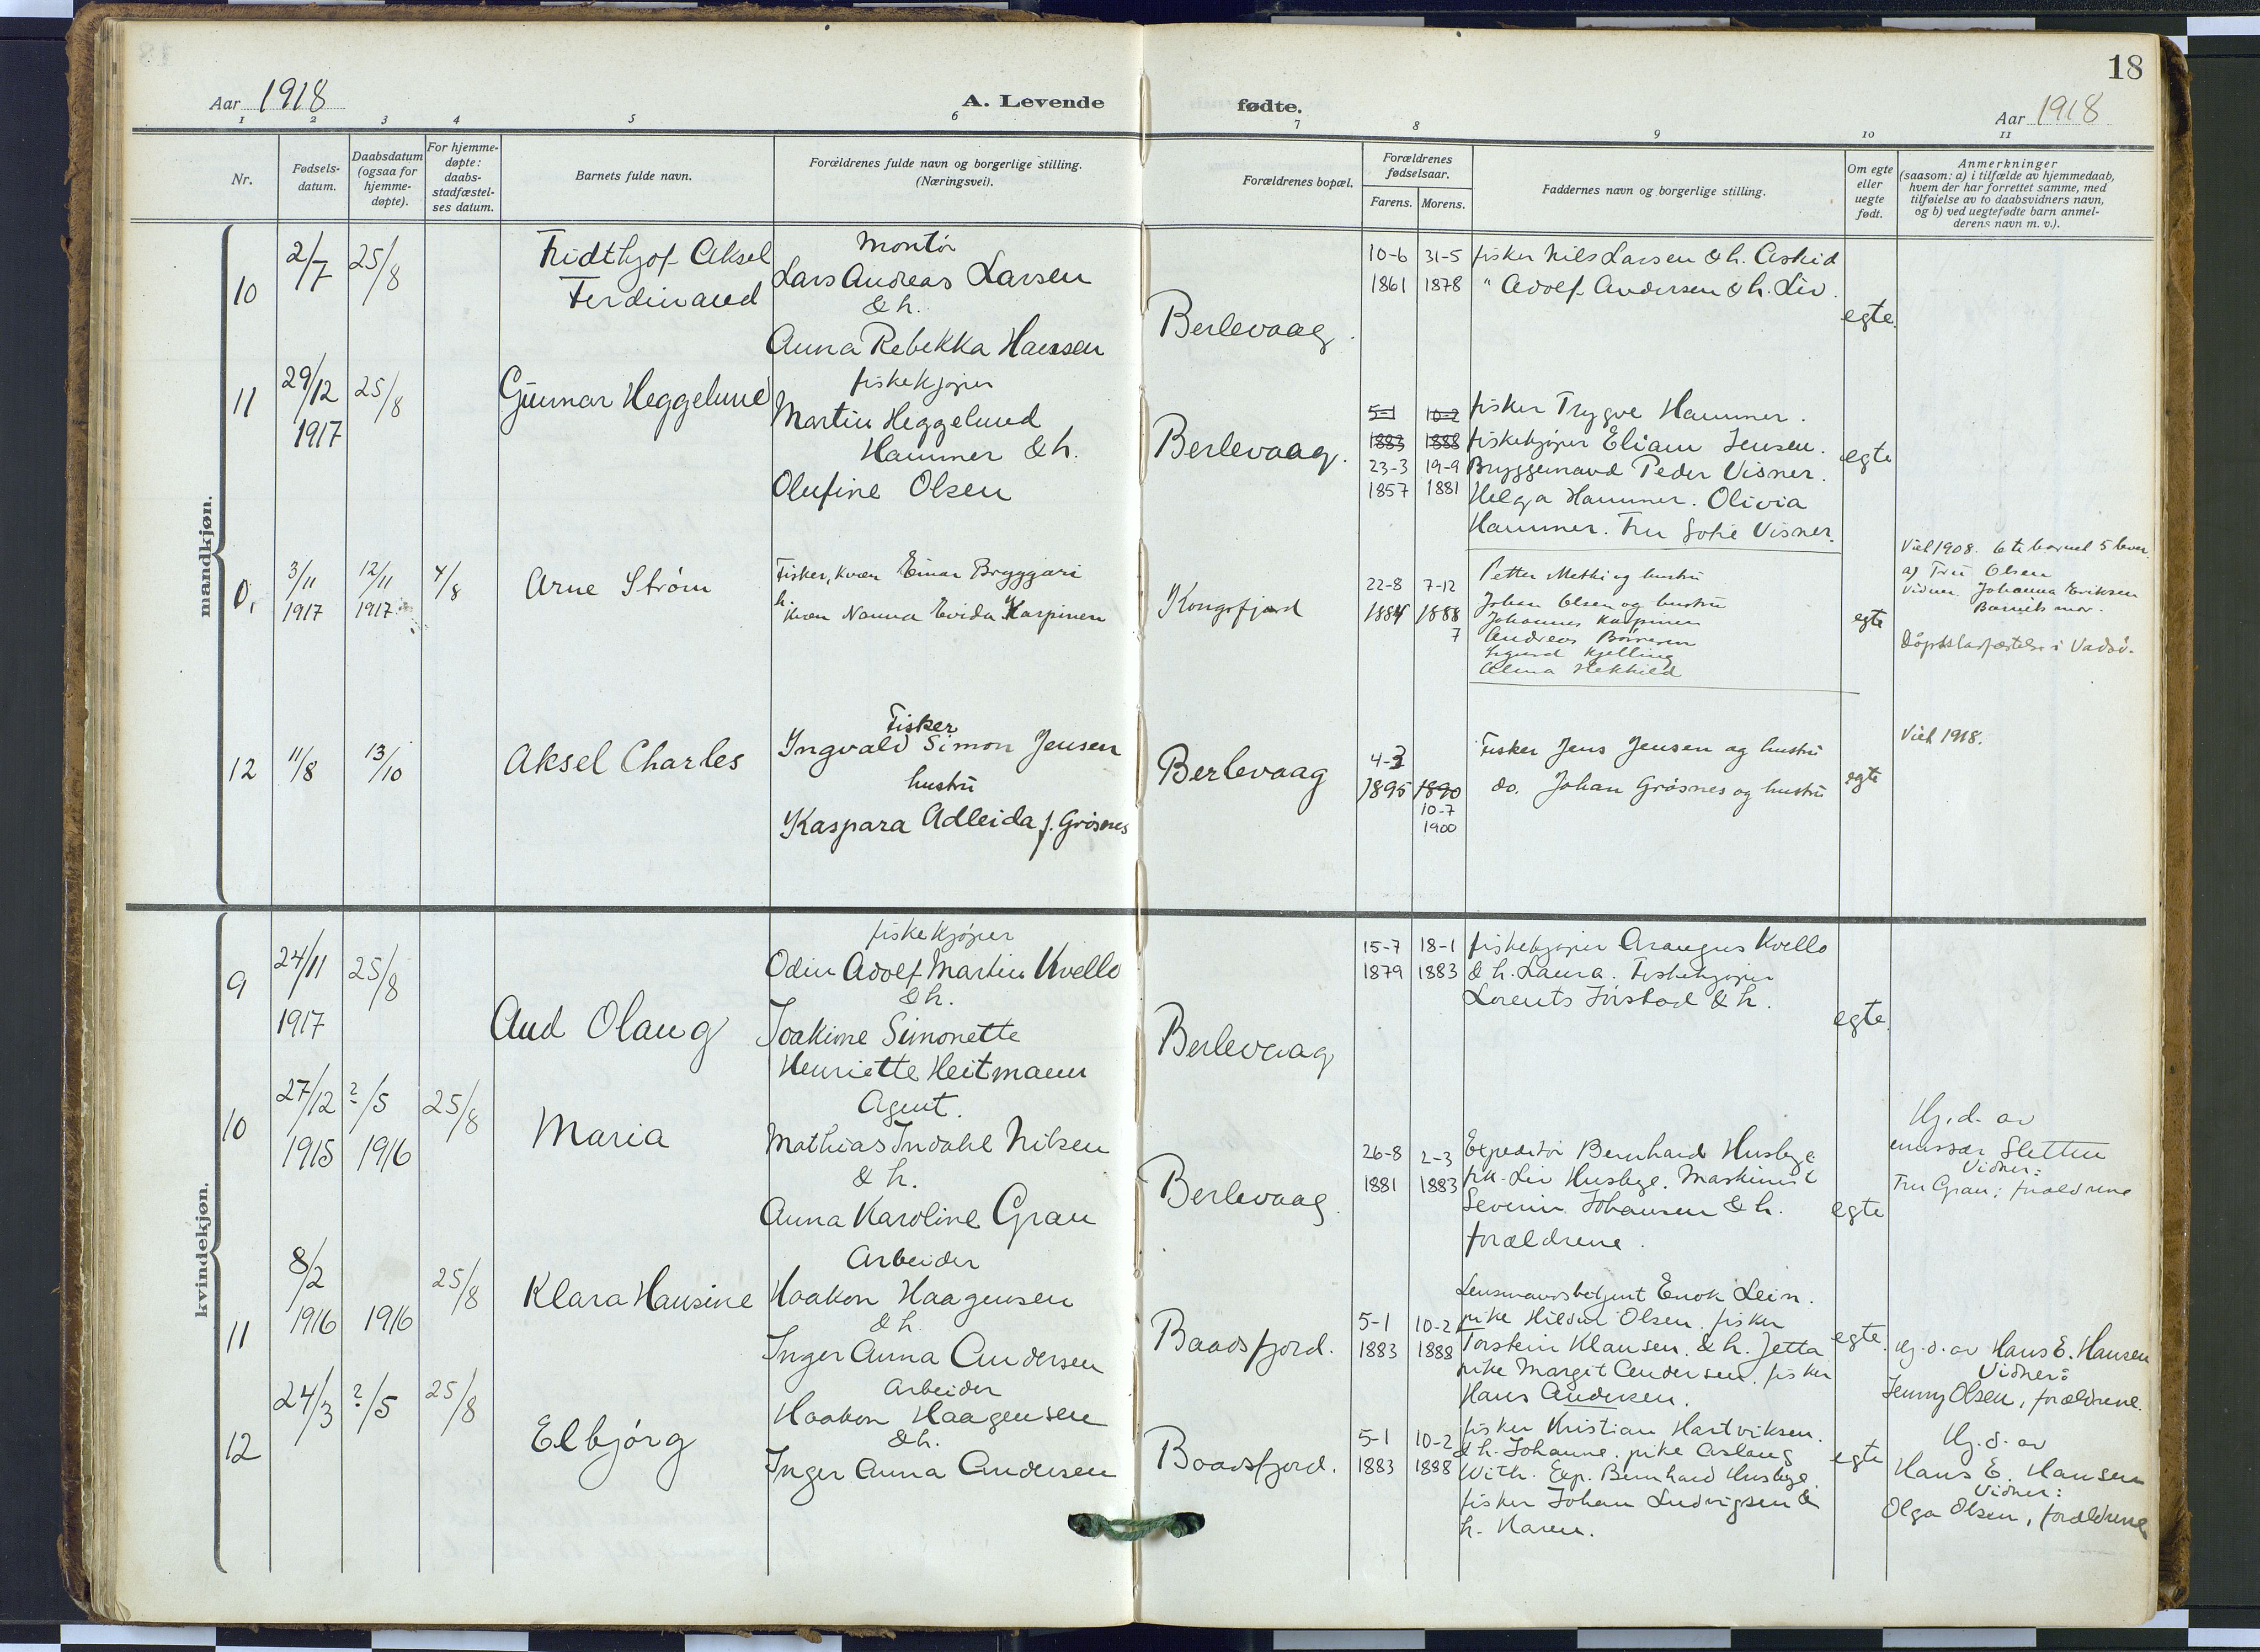 18
Aar 1918
A. Levende
fødte.
Aar 1918
1 2 3 4 5 6 7 8 9 10 11
Nr.
Fødsels-
datum.
Daabsdatum
(ogsaa for
hjemme-
døpte).
For hjemme-
døpte:
daabs-
stadfæstel-
ses datum.
Barnets fulde navn.
Forældrenes fulde navn og borgerlige stilling.
(Næringsvei).
Forældrenes bopæl.
Forældrenes
fødselsaar.
Farens. Morens.
Faddernes navn og borgerlige stilling.
Om egte
eller
uegte
født.
Anmerkninger
(saasom: a) i tilfælde av hjemmedaab,
hvem der har forrettet samme, med
tilføielse av to daabsvidners navn,
og b) ved uegtefødte barn anmel-
derens navn m. v.).
mandkjøn.
10
2/7
25/8
Fridthjof Aksel
Ferdinand
Montør
Lars Andreas Larsen
& h.
Anna Rebekka Hansen
Berlevaag.
10-6
1861
31-5
1878
fisker Nils Larsen & h. Astrid
" Adolf Andersen & h. Liv.
egte.
11
29/12
1917
25/8
Gunnar Heggelund
fiskekjøper
Martin Heggelund
Hammer & h.
Olufine Olsen
Berlevaag.
5-1
1883
23-3
1857
10-2
1888
19-9
1881
fisker Trygve Hammer.
fiskekjøper Eliam Jensen.
Bryggemand Peder Visner.
Helga Hammer. Olivia
Hammer. Fru Sofie Visner.
egte
0,
3/11
1917
12/11
1917
4/8
Arne Strøm
Fisker, kvæn Einar Bryggari
h.
kvæn Nanna Evida Karpinen
Kongsfjord
22-8
1884
7-12
1888
7
Petter Methi og hustru
Johan Olsen og hustru
Johannes Karpinen
Andreas
Sigurd Kjelling
Alma
egte
Viet 1908. 6te barnet 5 lever.
af Fru Olsen
Vidner Johanna Eriksen
Barnets mor.
i Vadsø.
12
11/8
13/10
Aksel Charles
Fisker
Yngvald Simon Jensen
hustru
Kaspara Adleida f. Grøsnes
Berlevaag
4-3
1895
1890
10-7
1900
Fisker Jens Jensen og hustru
do. Johan Grøsnes og hustru
egte
Viet 1918.
kvindekjøn.
9
24/11
1917
25/8
Aud Olaug
fiskekjøper
Odin Adolf Martin Kvello
& h.
Joakime Simonette
Henriette Heitmann
Berlevaag
15-7
1879
18-1
1883
fiskekjøper Kvello
& h. Laura. Fiskekjøper
Lorents & h.
egte.
10
27/12
1915
?/5
1916
25/8
Maria
Agent.
Mathias Indahl Nilsen
& h.
Anna Karoline Grau
Berlevaag.
26-8
1881
2-3
1883
Expeditør Bernhard Husbye
frk. Liv Husbye. Maskinist
Severin Johansen & h.
forældrene.
egte
Hj. d. av
Sletten
Vidner:
Fru Grau; forældrene
11
8/2
1916
1916
25/8
Klara Hansine
Arbeider
Haakon Haagensen
& h
Inger Anna Andersen
Baadsfjord.
5-1
1883
10-2
1888
Lensmandsbetjent Enok Lein.
pike Hildur Olsen. fisker
Torstein Klausen. & h. Jetta
pike Margit Andersen. fisker
Hans Andersen.
egte.
Hj. d. av Hans E. Hansen
Vidner:
Jenny Olsen, forældrene.
12
24/3
?/5
25/8
Elbjørg
Arbeider
Haakon Haagensen
& h.
Inger Anna Andersen
Baadsfjord.
5-1
1883
10-2
1888
fisker Kristian Hartviksen.
& h. Johanne. pike Aslaug
With. Exp. Bernhard Husbye
fisker Johan Ludvigsen &
h. Karen.
egte
Hj. d. av
Hans E. Hansen
Vidner:
Olga Olsen, forældrene